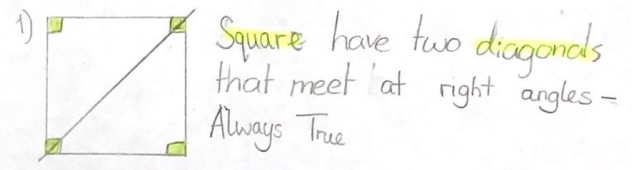 1) Square have two diagonals
that meet at right angles –
Always True